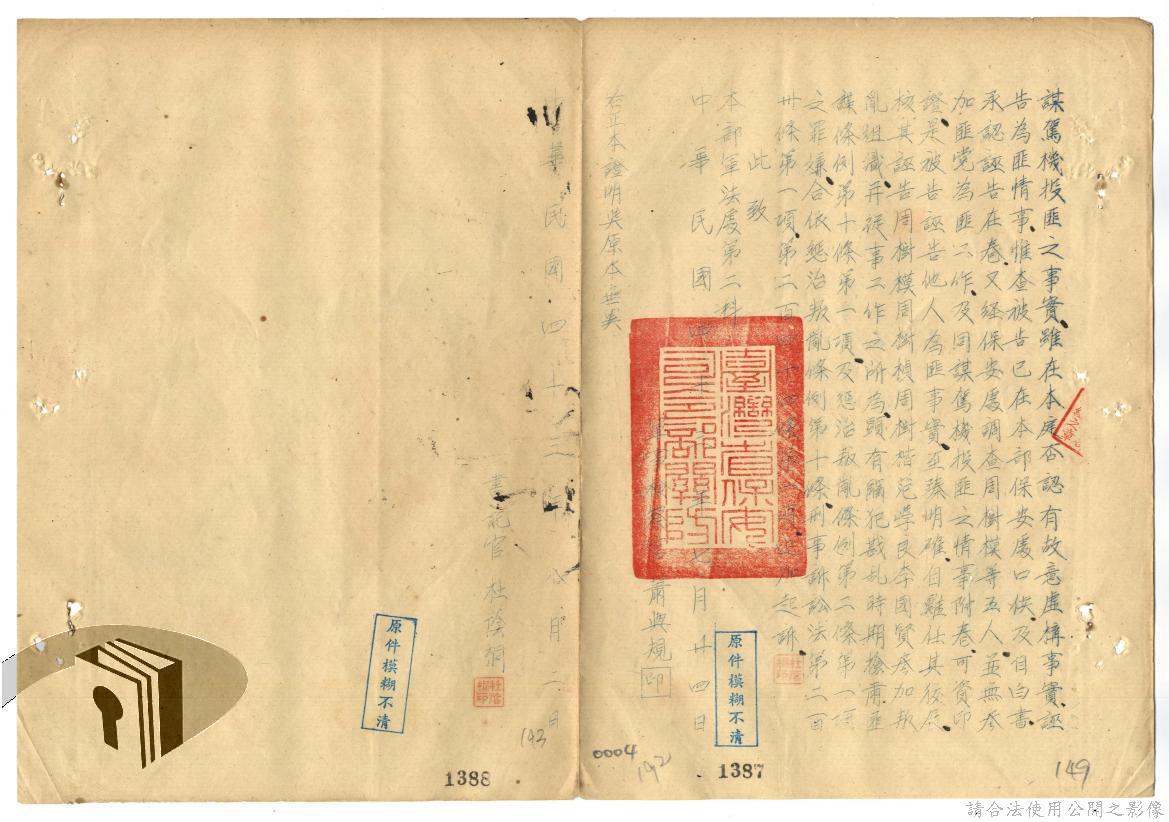 謀駕機投匪之事實雖在本庭否認有故意虛構事實誣
告為匪情事惟查被告已在本部保安處口供及自白書
承認誣告在卷又經保安處調查周樹模等五人並無參
加匪党為匪工作及同謀駕機投匪之情事附卷可資印
證是被告誣告他人為匪事實至臻明確自難任其狡展
核其誣告周樹模周樹楨周樹楷范學良李國賢參加叛
亂組織并從事工作之所為顯有觸犯戡乱時期檢肅匪
諜條例第十條第一項及懲治叛亂條例第二條第一項
之罪嫌合依懲治叛亂條例第十條刑事訴訟法第二百
卅條第一項第二百 起訴
此致
本部軍法處第二科
中華民國 年七月廿四日
肅與規 印
右正本證明與原本無異
華民國四十 月二日
書記官 杜蔭
臺灣省保安司令部關防
原件模糊不清
原件模糊不清
0004
192
193
149
1387
1388
請合法使用公開之影像